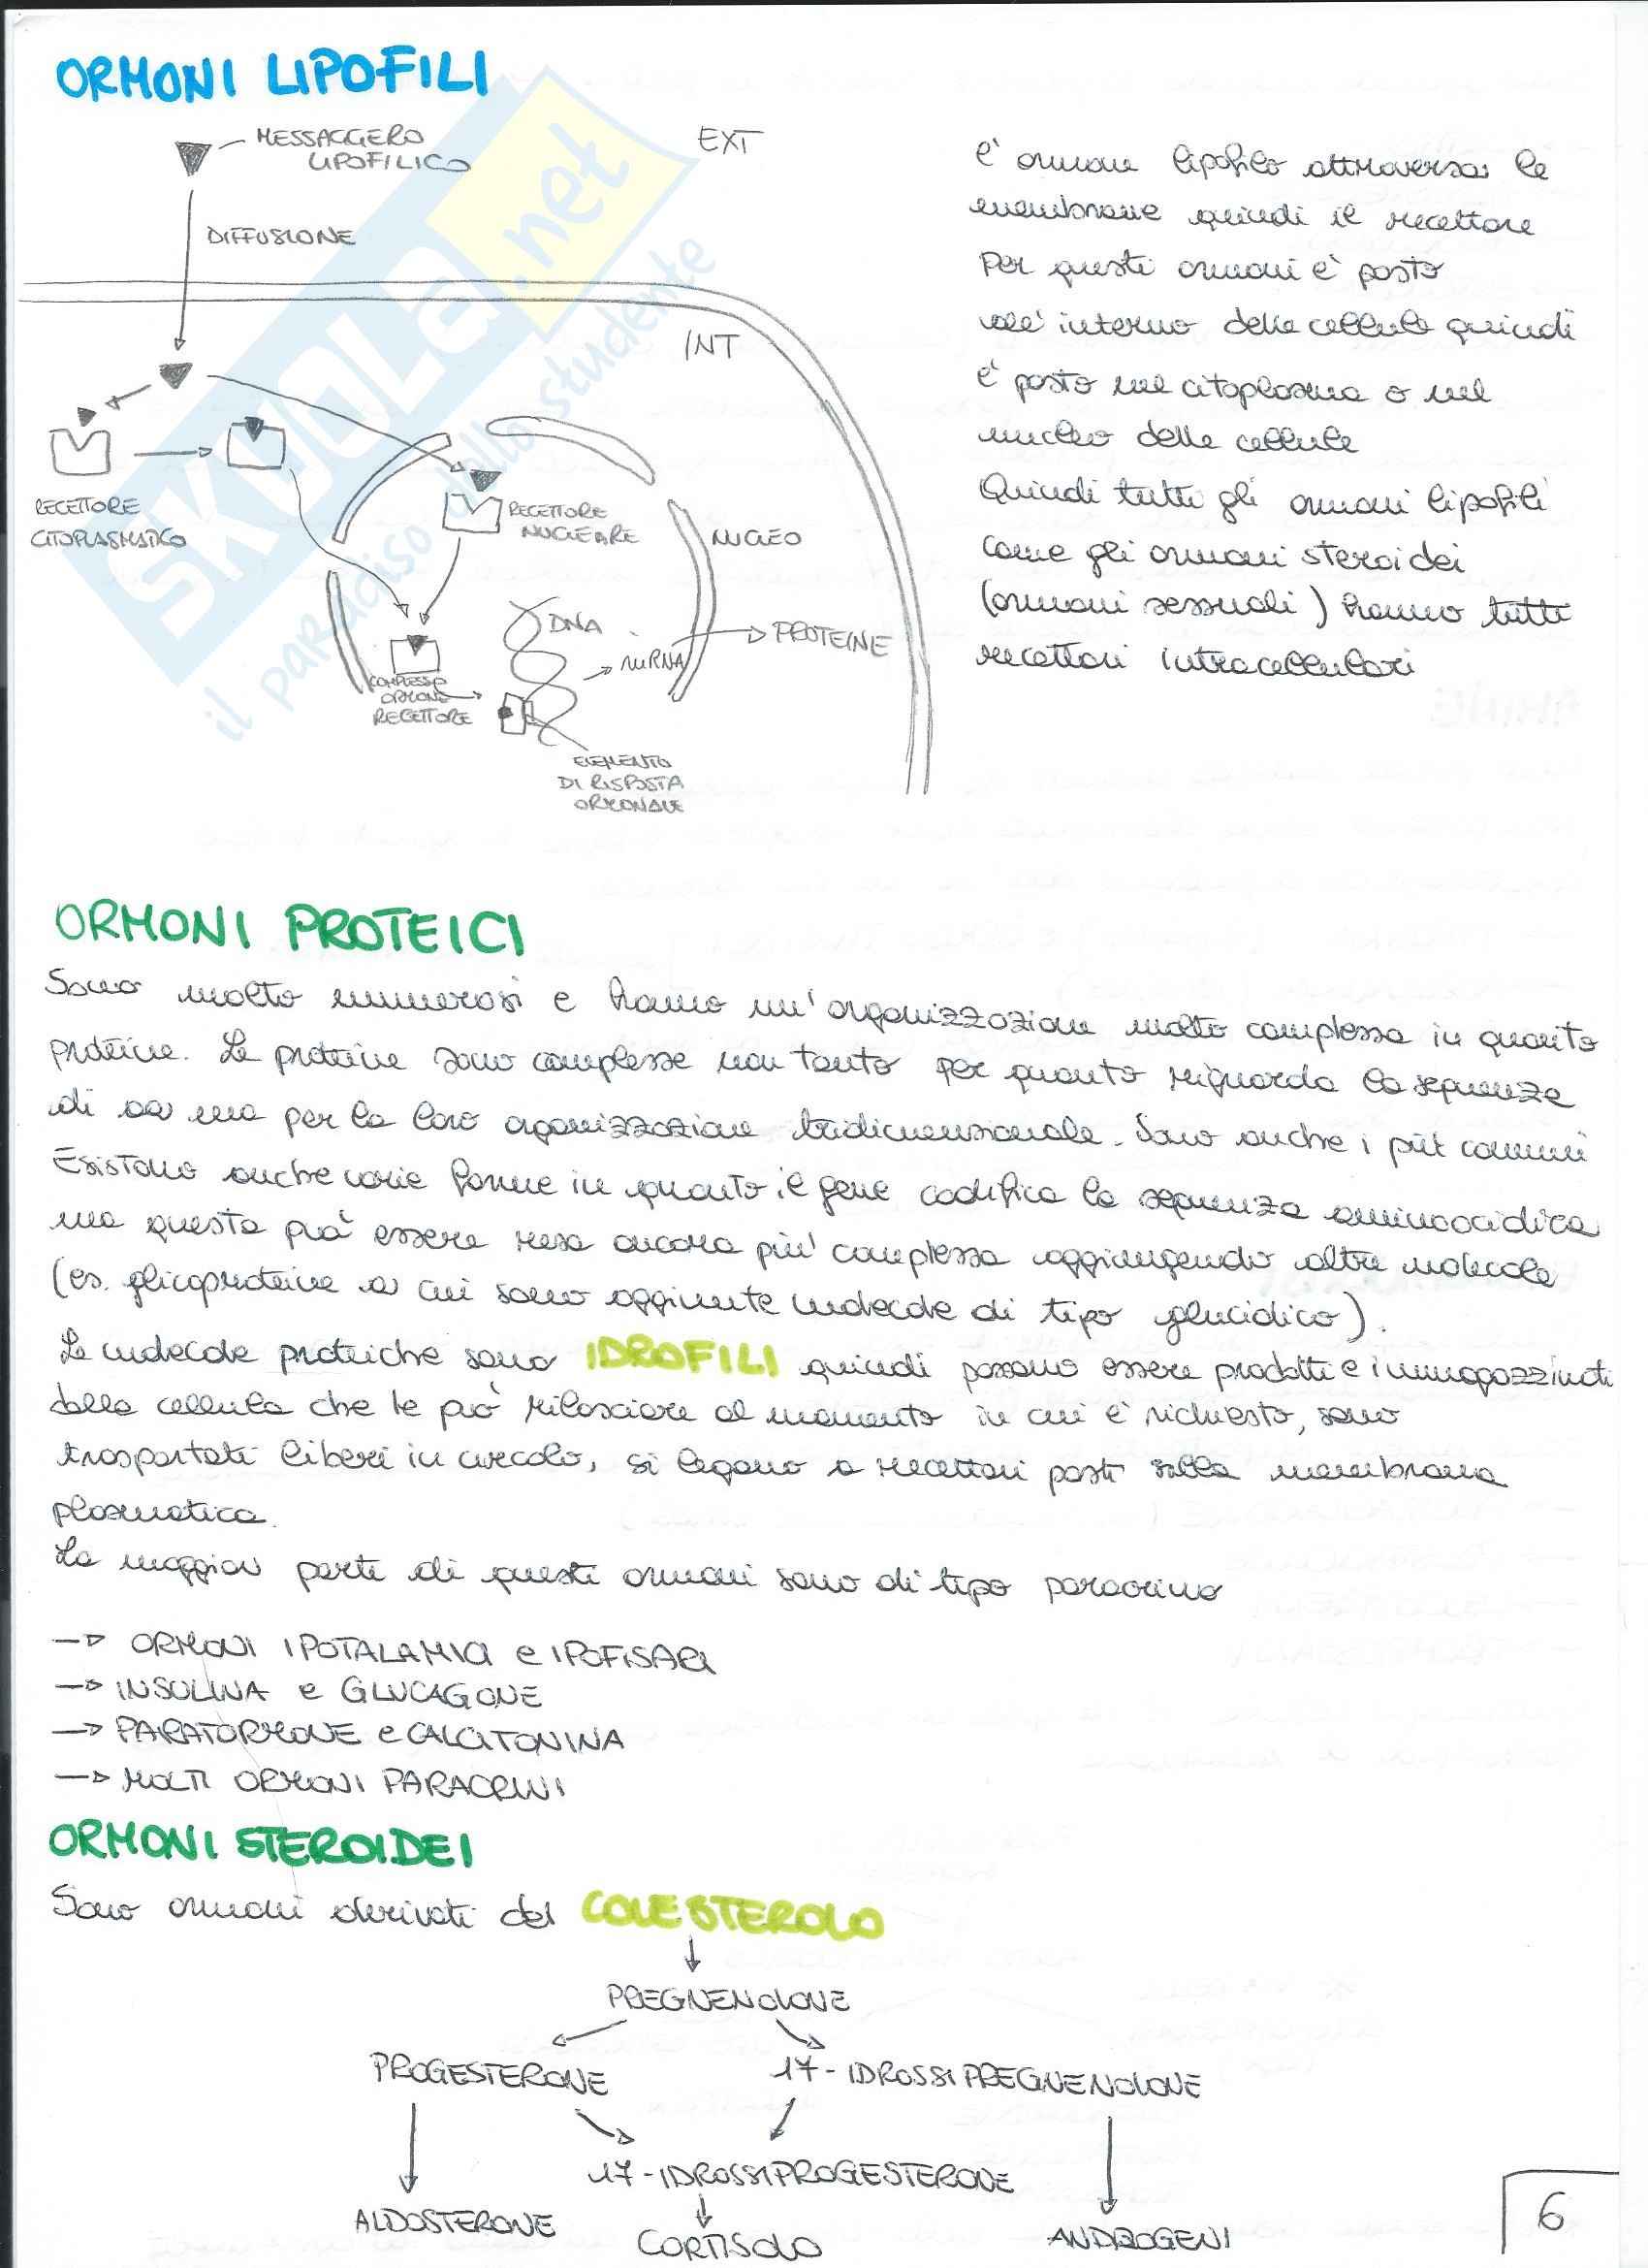 ORMONI LIPOFILI
MESSAGGERO
LIPOFILICO
EXT
DIFFUSIONE
INT
RECETTORE
CITOPLASMATICO
RECETTORE
NUCLEARE
NUCLEO
DNA
mRNA
PROTEINE
COMPLESSO
ORMONE
RECETTORE
ELEMENTO
DI RISPOSTA
ORMONALE
l'ormone lipofilo attraversa le
membrane quindi il recettore
per questi ormoni è posto
all'interno della cellula quindi
è posto nel citoplasma o nel
nucleo della cellula
Quindi tutti gli ormoni lipofili
come gli ormoni steroidei
(ormoni sessuali) hanno tutti
recettori intracellulari
SKUOLA.net
il paradiso dello studente
ORMONI PROTEICI
Sono molto numerosi e hanno un'organizzazione molto complessa in quanto
proteine. Le proteine sono complesse non tanto per quanto riguarda la sequenza
di aa ma per la loro organizzazione tridimensionale. Sono anche i più comuni
Esistono anche varie forme in quanto il gene codifica la sequenza aminoacidica
ma questa può essere resa ancora più complessa aggiungendo altre molecole
(es. glicoproteine a cui sono aggiunte molecole di tipo glucidico).
Le molecole proteiche sono IDROFILI quindi possono essere prodotti e immagazzinati
dalla cellula che le può rilasciare al momento in cui è richiesto, sono
trasportati liberi in circolo, si legano a recettori posti sulla membrana
plasmatica.
La maggior parte di questi ormoni sono di tipo paracrino
→ ORMONI IPOTALAMICI e IPOFISARI
→ INSULINA e GLUCAGONE
→ PARATORMONE e CALCITONINA
→ MOLTI ORMONI PARACRINI
ORMONI STEROIDEI
Sono ormoni derivati del COLESTEROLO
PREGNENOLONE
PROGESTERONE 17-IDROSSIPREGNENOLONE
17-IDROSSIPROGESTERONE
ALDOSTERONE CORTISOLO ANDROGENI
6